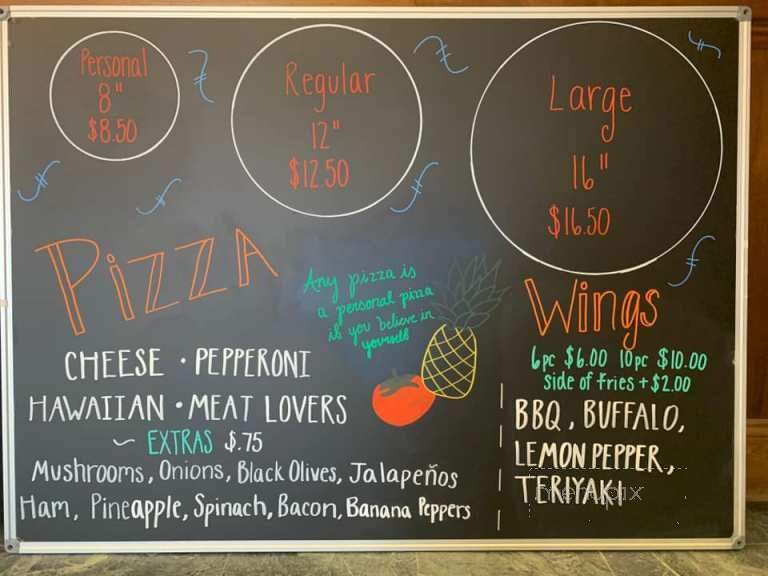 Personal
8"
$8.50
Regular
12"
$12.50
Large
16"
$16.50
Pizza
Any pizza is
a personal pizza
is you believe in
yourself
CHEESE • PEPPERONI
HAWAIIAN • MEAT LOVERS
~ EXTRAS $.75
Mushrooms, Onions, Black Olives, Jalapeños
Ham, Pineapple, Spinach, Bacon, Banana Peppers
Wings
6pc $6.00 10pc $10.00
side of fries + $2.00
BBQ, BUFFALO,
LEMON PEPPER,
TERIYAKI
menupix